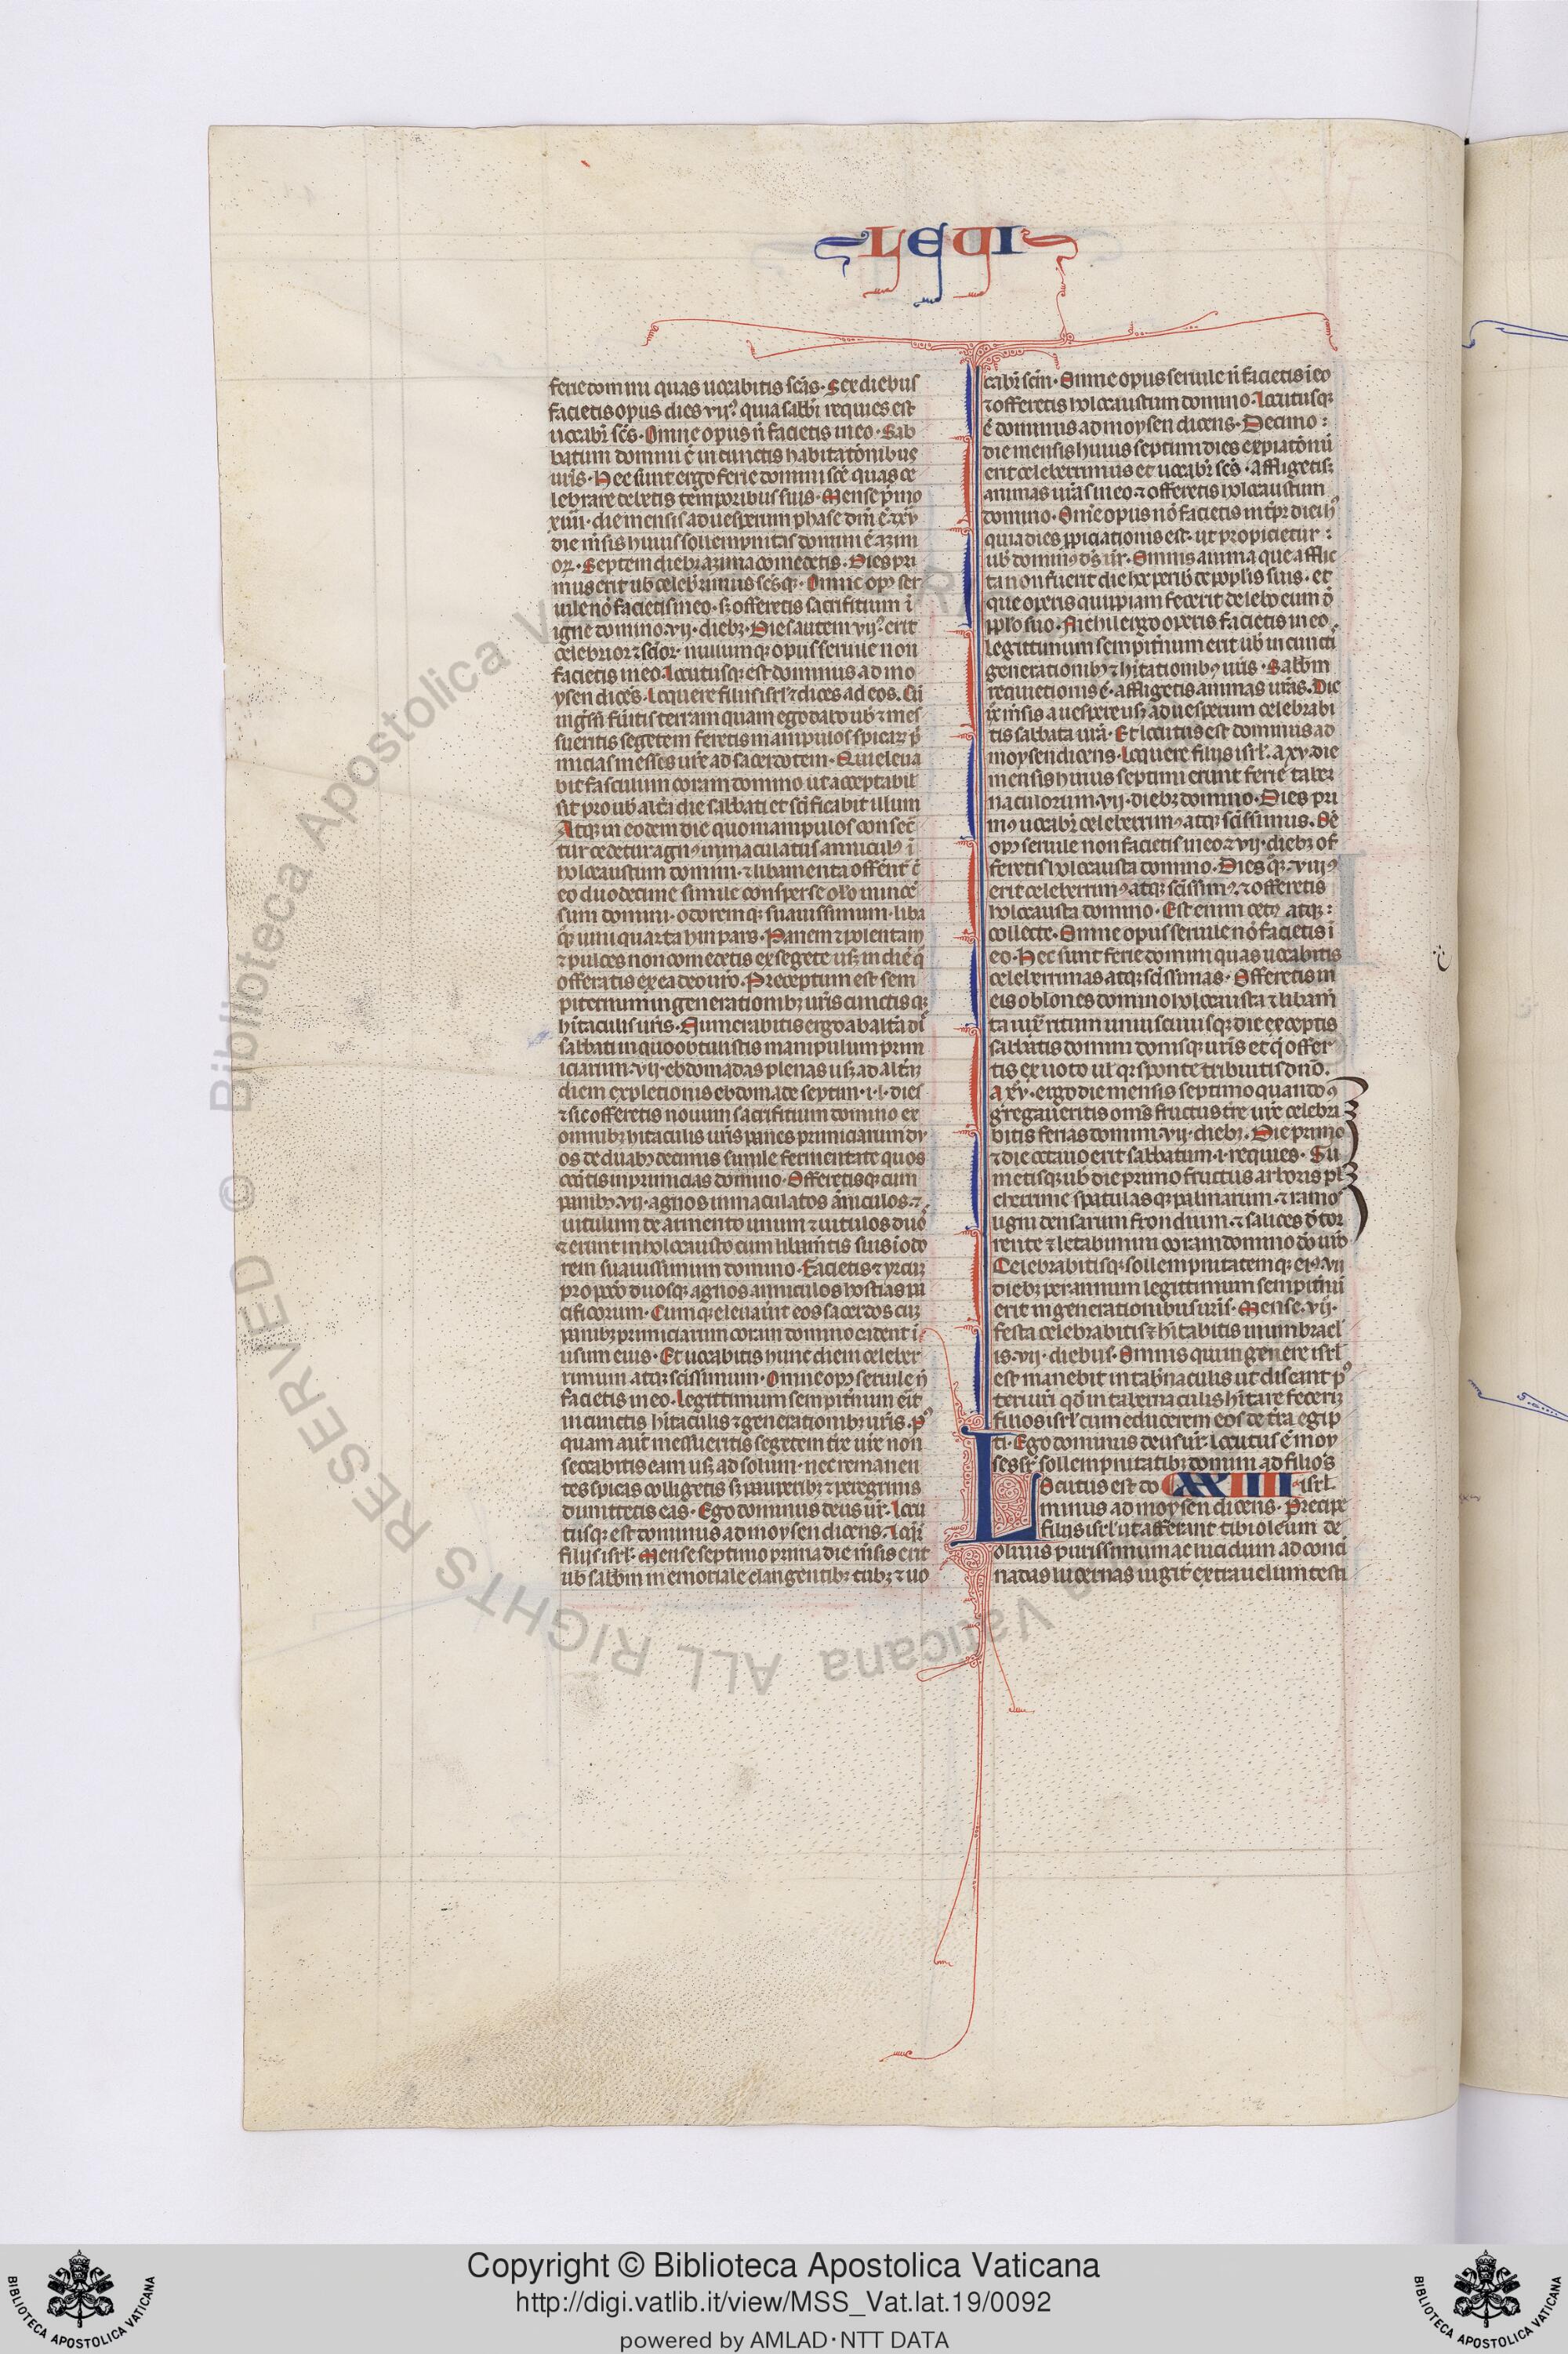 LEVI
ferie domini quas uocabitis sc̃as. Sex diebus
facietis opus dies vij.ͣ quia sabb̃i requies est
uocabit̃ sc̃s. Omne opus ñ facietis in eo. Sab
batum domini ẽ in cunctis habitatõnibus
ur̃is. Hec sunt ergo ferie domini sc̃e quas ce
lebrare debetis temporibus suis. Mense p̃mo
xiiii. die mensis ad uesperum phase dñi ẽ. ⁊ xv
die m̃sis huius sollempnitas domini ẽ azim
oꝝ. Septem diebꝫ azima comedetis. Dies pri
mus erit uob̃ celeb̃rimus sc̃sqꝫ. Omne opꝰ ser
uile nõ facietis in eo. sꝫ offeretis sacrifitium ĩ
igne domino .vij. diebꝫ. Dies autem vijͣ. erit
celebrior ⁊ sc̃ior. nullumqꝫ opus seruile non
facietis in eo. Locutusqꝫ est dominus ad mo
ysen dicẽs. Loquere filiis isrl̃ ⁊ dices ad eos. Cũ
ingr̃si fũitis terram quam ego dabo uob̃ ⁊ mes
sueritis segetem feretis manipulos spicaꝝ p̃
micias messes ur̃e ad sacerdotem. Qui eleua
bit fasciculum coram domino ut acceptabil̃
sit pro uob̃ alt̃a die sabbati et sc̃ificabit illum
Atqꝫ in eodem die quo manipulos consec̃
tur cedetur agnꝰ inmaculatus anniculꝰ ĩ
holocaustum domini. ⁊ libamenta offer̃nt̃ c̃
eo due decime simile consperse oleo in incẽ
sum domini. odoremqꝫ suauissimum. liba
q̃ꝫ uini quarta hin pars. Panem ⁊ polentam
⁊ pultes non comedetis ex segete usqꝫ in diẽ q̃
offeratis ex ea deo ur̃o. Preceptum est sem
piternum in generationibꝫ ur̃is cunctisqꝫ
hĩtaculis ur̃is. Numerabitis ergo ab alt̃a di
sabbati in quo obtulistis manipulum prim
iciarum .vij. ebdomadas plenas usqꝫ ad alt̃am
diem expletionis ebdomade septim̃. i. l. dies
⁊ sic offeretis nouum sacrifitium domino ex
omnibꝫ hĩtaculis ur̃is panes primiciarum du
os de duabꝫ decimis simile fermentate quos
coq̃tis in primicias domino. Offeretisqꝫ cum
panibꝫ .vij. agnos inmaculatos ãniculos. ⁊
uitulum de armento unum ⁊ uitulos duõ
⁊ erunt in holocausto cum libam̃tis suis ĩ odo
rem suauissimum domino. Facietis ⁊ yrcum
pro pccõ duosqꝫ agnos anniculos hostias pa
cificorum. Cumqꝫ eleuaũit eos sacerdos cum
panibꝫ primiciarum coram domino cadent ĩ
usum eius. Et uocabitis hunc diem celeber
rimum atqꝫ sc̃issimum. Omne opꝰ seruile ñ
facietis in eo. Legittimum sempit̃num erit
in cunctis hĩtaculis ⁊ generationibꝫ ur̃is. Pꝰ
quam aut̃ messueritis segetem tr̃e ur̃e non
secabitis eam usqꝫ ad solum. nec remanen
tes spicas colligetis sꝫ pauperibꝫ ⁊ peregrinis
dimittetis eas. Ego dominus deus ur̃. Locu
tusqꝫ est dominus ad moysen dicens. Loq̃r̃
filijs isrl̃. Mense septimo prima die m̃sis erit
uob̃ sabb̃m memoriale clangentibꝫ tubꝫ ⁊ uo
cabit̃ sc̃m. Omne opus seruile ñ facietis ĩ eo
⁊ offeretis holocaustum domino. Locutusqꝫ
ẽ dominus ad moysen dicens. Decimo:
die mensis huius septimi dies expiatõnũ
erit celeberrimus et uocabit̃ sc̃s. affligetisqꝫ
animas ur̃as in eo ⁊ offeretis holocaustum
domino. Om̃e opus nõ facietis in tp̃r diei hꝰ
quia dies ꝓpiciationis est. ut propicietur:
uob̃ dominꝰ ds̃ ur̃. Omnis anima que afflic
ta non fuerit die hoc peribit de poplis suis. et
que operis quippiam fecerit delebo eum d̃
pplo suo. Nichil ergo operis facietis in eo.
legittimum sempit̃num erit uob̃ in cuncti
generationibꝰ ⁊ hĩtationibꝰ ur̃is. Sabb̃m
requietionis ẽ. affligetis animas ur̃as. Die
ix m̃sis a uespere usqꝫ ad uesperum celebrabi
tis sabbata ur̃a. Et locutus est dominus ad
moysen dicens. Loquere filijs isrl̃. a xv. die
mensis huius septimi erunt ferie taber
naculorum .vij. diebꝫ domino. Dies pri
mꝰ uocabit̃ celeberrimꝰ atqꝫ sc̃issimus. Om̃e
opꝰ seruile non facietis in eo. ⁊ vij. diebꝫ of
feretis holocausta domino. Dies q̃ꝫ. viijꝰ
erit celeberrimꝰ atqꝫ sc̃issimꝰ. ⁊ offeretis
holocausta domino. Est enim cetꝰ atqꝫ:
collecte. Omne opus seruile nõ facietis ĩ
eo. Hec sunt ferie domini quas uocabitis
celeberrimas atqꝫ sc̃issimas. Offeretis in
eis oblõnes domino holocausta ⁊ libam̃
ta iux̃ ritum uniuscuiusqꝫ diei exceptis
sabbatis domini donisqꝫ ur̃is et q̃ offer
tis ex uoto ul̃ q̃ sponte tribuitis dñõ.
A xv. ergo die mensis septimo quando ꝯ
gregaueritis om̃s fructus tr̃e ur̃e celebra
bitis ferias domini .vij. diebꝫ. Die primo
⁊ die octauo erit sabbatum. i. requies. Su
metisqꝫ uob̃ die primo fructus arboris pl̃
cherrime spatulasqꝫ palmarum. ⁊ ramos
ligni densarum frondium. ⁊ salices d̃ tor
rente ⁊ letabimini coram domino dõ ur̃o
Celebrabitisqꝫ sollempnitatemqꝫ eiꝰ .vij
diebꝫ per annum legittimum sempit̃nũ
erit in generationibus ur̃is. Mense .vij.
festa celebrabitis ⁊ hĩtabitis in umbracl̃
is .vij. diebus. Omnis qui in genere isrl̃
est manebit in tab̃naculis ut discant pꝰ
teri ur̃i qđ in tabernaculis hĩtare fecerim
filios isrl̃ cum educerem eos de t̃ra egip
ti. Ego dominus deus ur̃. Locutus ẽ moy
ses sr̃ sollempnitatibꝫ domini ad filios
Locutus est do XXIIII isrl̃.
minus ad moysen dicens. Precipe
filijs isrl̃ ut afferant tibi oleum de
oliuis purissimum ac lucidum ad conci
nadas lucernas iugit̃ extra uelum testi
Copyright © Biblioteca Apostolica Vaticana
http://digi.vatlib.it/view/MSS_Vat.lat.19/0092
powered by AMLAD·NTT DATA
BIBLIOTECA APOSTOLICA VATICANA
BIBLIOTECA APOSTOLICA VATICANA
© Biblioteca Apostolica Vaticana ALL RIGHTS RESERVED